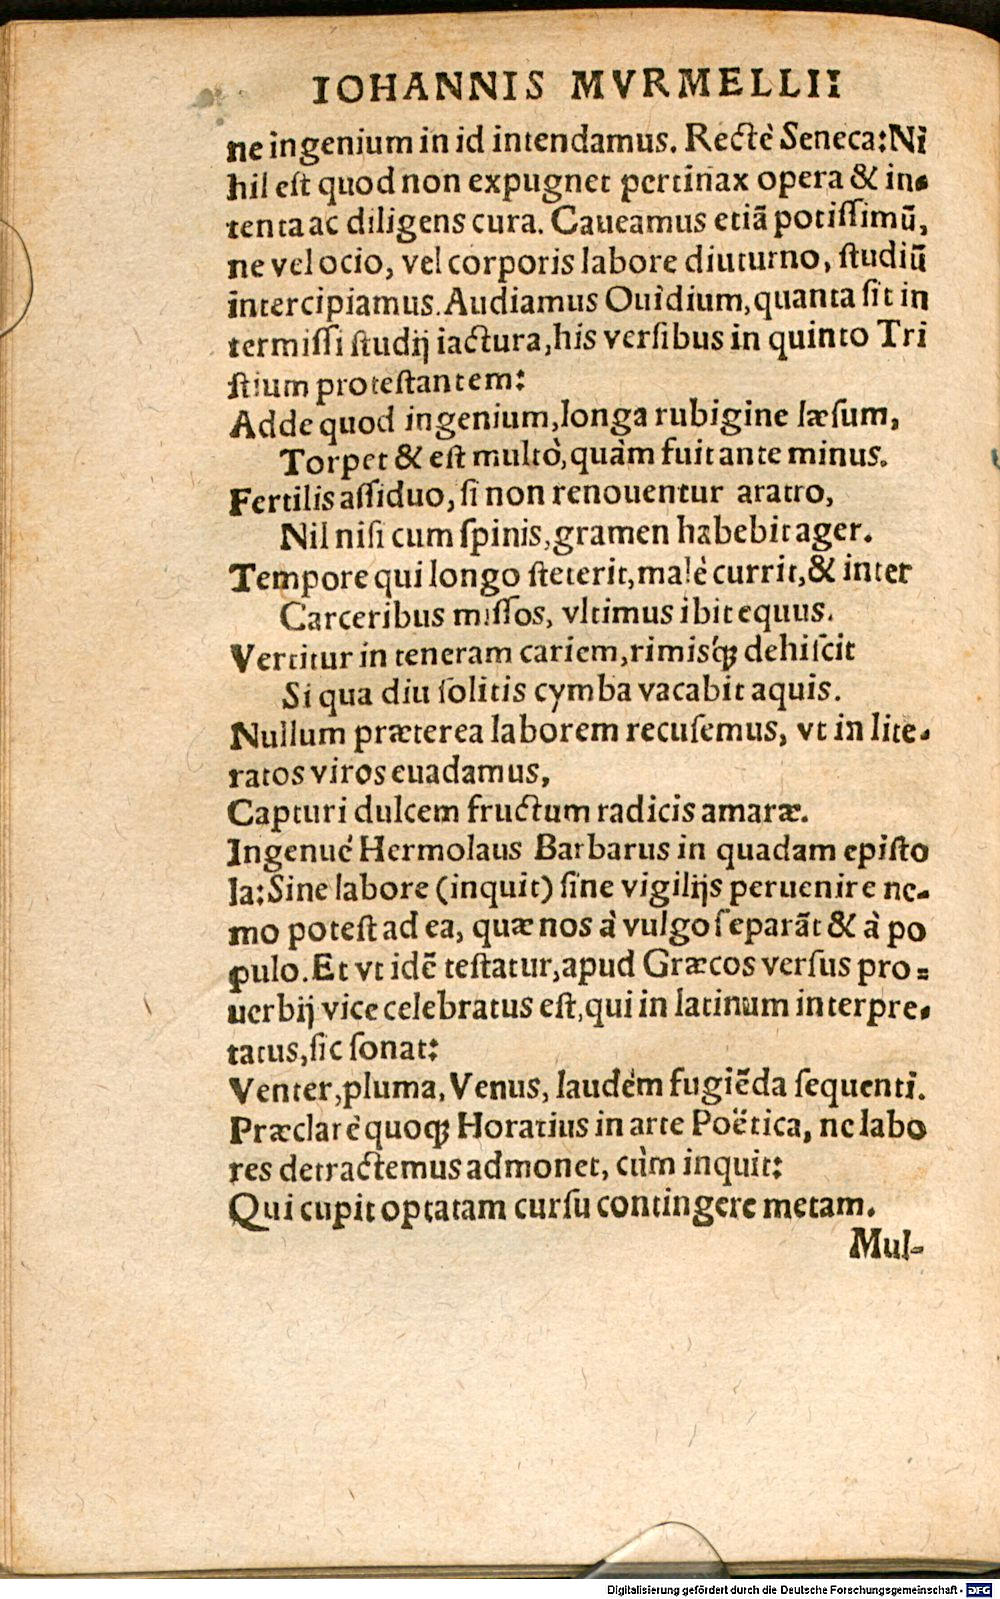 IOHANNIS MVRMELLII
ne ingenium in id intendamus. Rectè Seneca: Ni
hil est quod non expugnet pertinax opera & in-
tenta ac diligens cura. Caueamus etiā potissimū,
ne vel ocio, vel corporis labore diuturno, studiū
intercipiamus. Audiamus Ouidium, quanta sit in
termissi studij iactura, his versibus in quinto Tri
stium protestantem:
Adde quod ingenium, longa rubigine læsum,
Torpet & est multò, quàm fuit ante minus.
Fertilis assiduo, si non renouentur aratro,
Nil nisi cum spinis, gramen habebit ager.
Tempore qui longo steterit, malè currit, & inter
Carceribus missos, vltimus ibit equus.
Vertitur in teneram cariem, rimisq́; dehiscit
Si qua diu solitis cymba vacabit aquis.
Nullum præterea laborem recusemus, vt in lite-
ratos viros euadamus,
Capturi dulcem fructum radicis amaræ.
Ingenuè Hermolaus Barbarus in quadam episto
la: Sine labore (inquit) sine vigilijs peruenire ne-
mo potest ad ea, quæ nos à vulgo separāt & à po
pulo. Et vt idē testatur, apud Græcos versus pro-
uerbij vice celebratus est, qui in latinum interpre-
tatus, sic sonat:
Venter, pluma, Venus, laudem fugiēda sequenti.
Præclarè quoq; Horatius in arte Poëtica, ne labo
res detractemus admonet, cùm inquit:
Qui cupit optatam cursu contingere metam.
Mul-
Digitalisierung gefördert durch die Deutsche Forschungsgemeinschaft - DFG